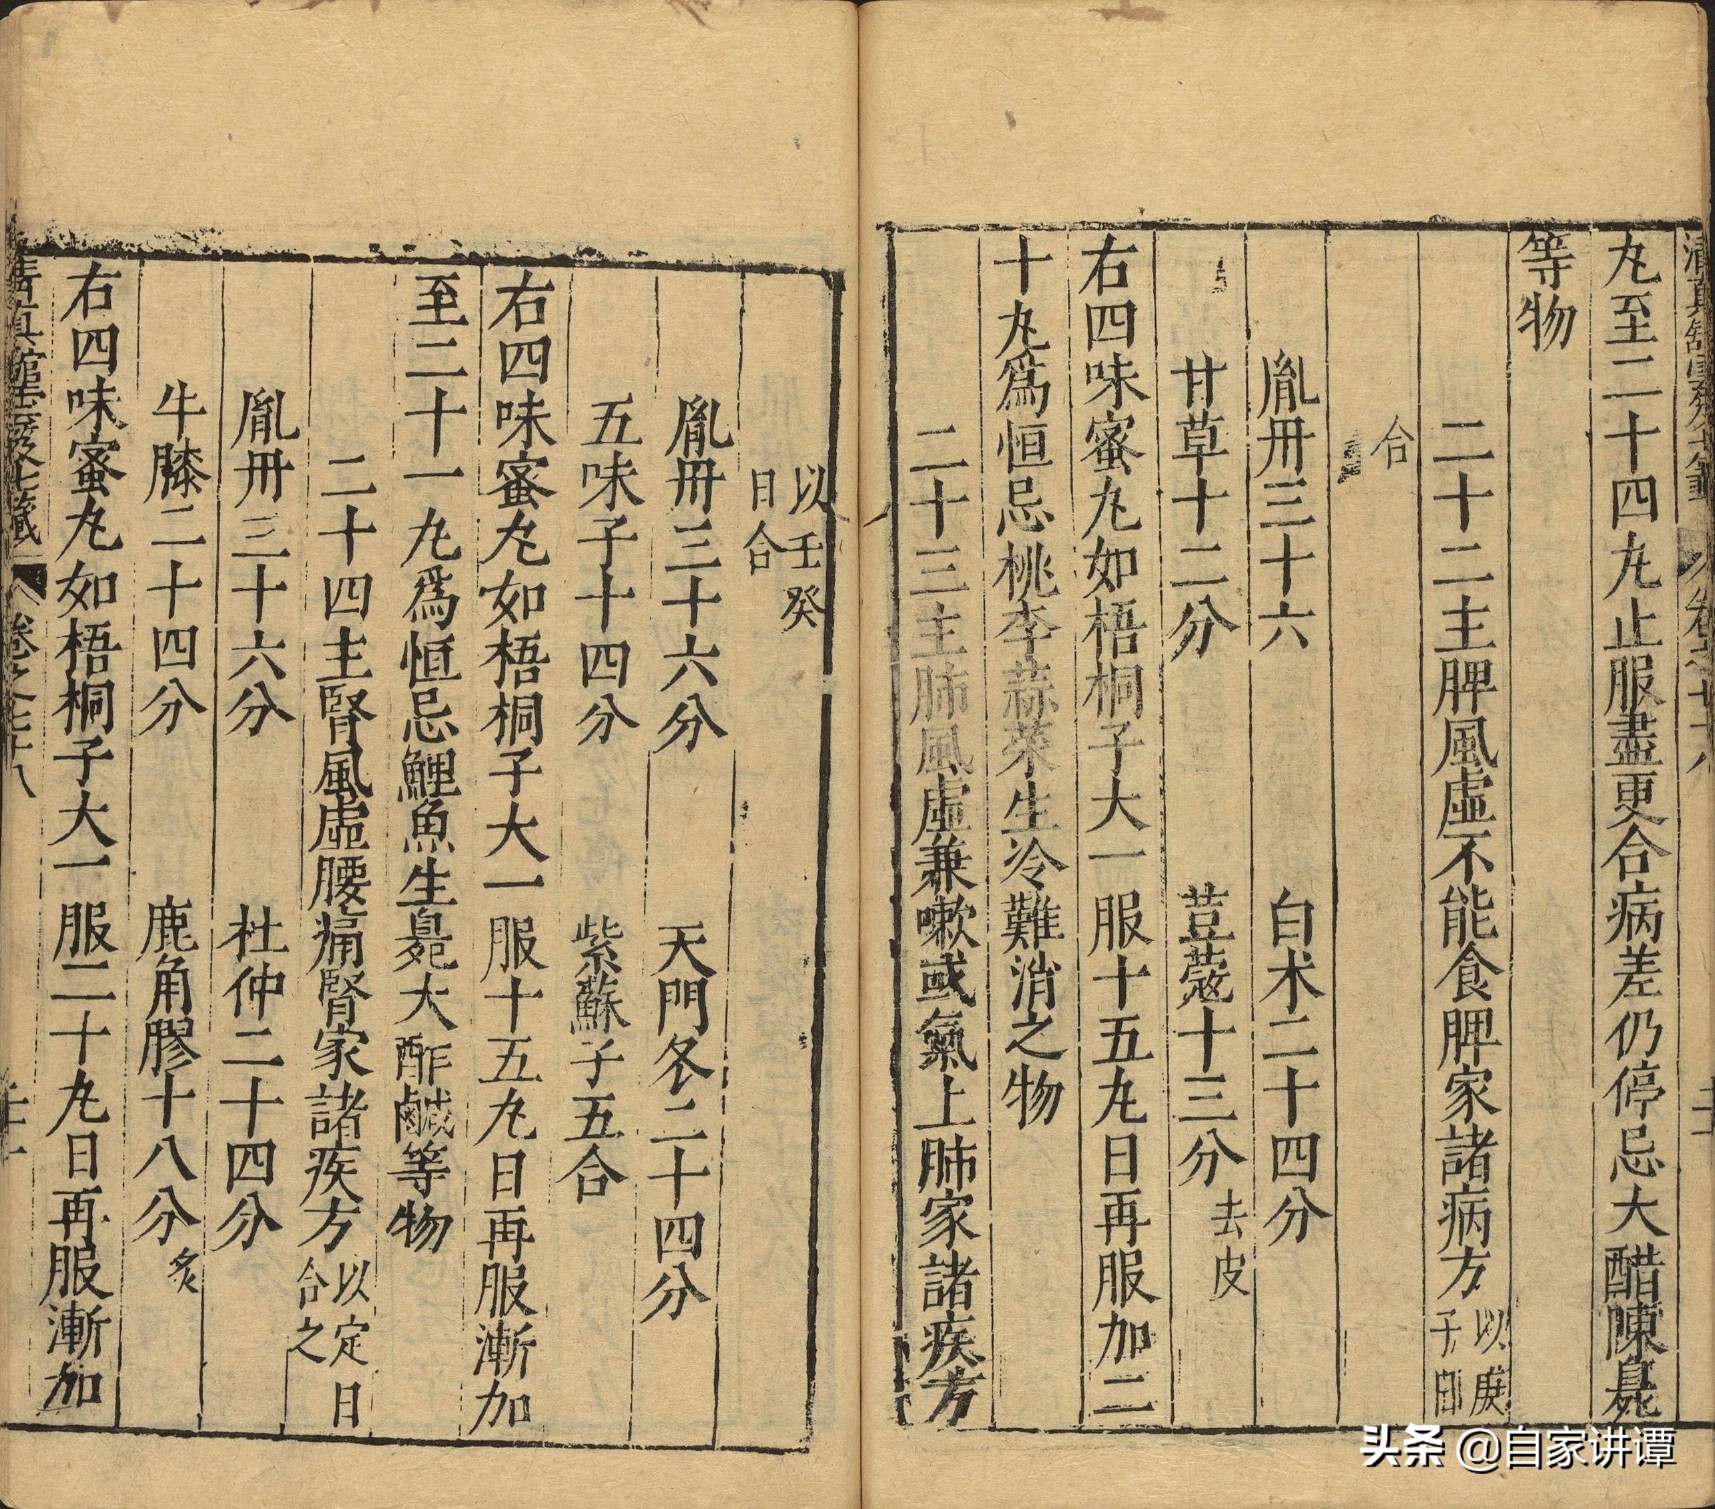 丸至二十四丸止服盡更合病差仍停忌大醋陳臰
等物
二十二主脾風虛不能食脾家諸病方以庚子日
合
胤丹三十六 白术二十四分
甘草十二分 荳蔻十三分去皮
右四味蜜丸如梧桐子大一服十五丸日再服加二
十丸爲恒忌桃李蒜菜生冷難消之物
二十三主肺風虛兼嗽或氣上肺家諸疾方
以壬癸
日合
胤丹三十六分 天門冬二十四分
五味子十四分 紫蘇子五合
右四味蜜丸如梧桐子大一服十五丸日再服漸加
至二十一丸爲恒忌鯉魚生臰大酢鹹等物
二十四主腎風虛腰痛腎家諸疾方以定日合之
胤丹三十六分 杜仲二十四分
牛膝二十四分 鹿角膠十八分炙
右四味蜜丸如梧桐子大一服二十丸日再服漸加
清真館雲笈七籤 卷之七十八
头条 @自家讲谭